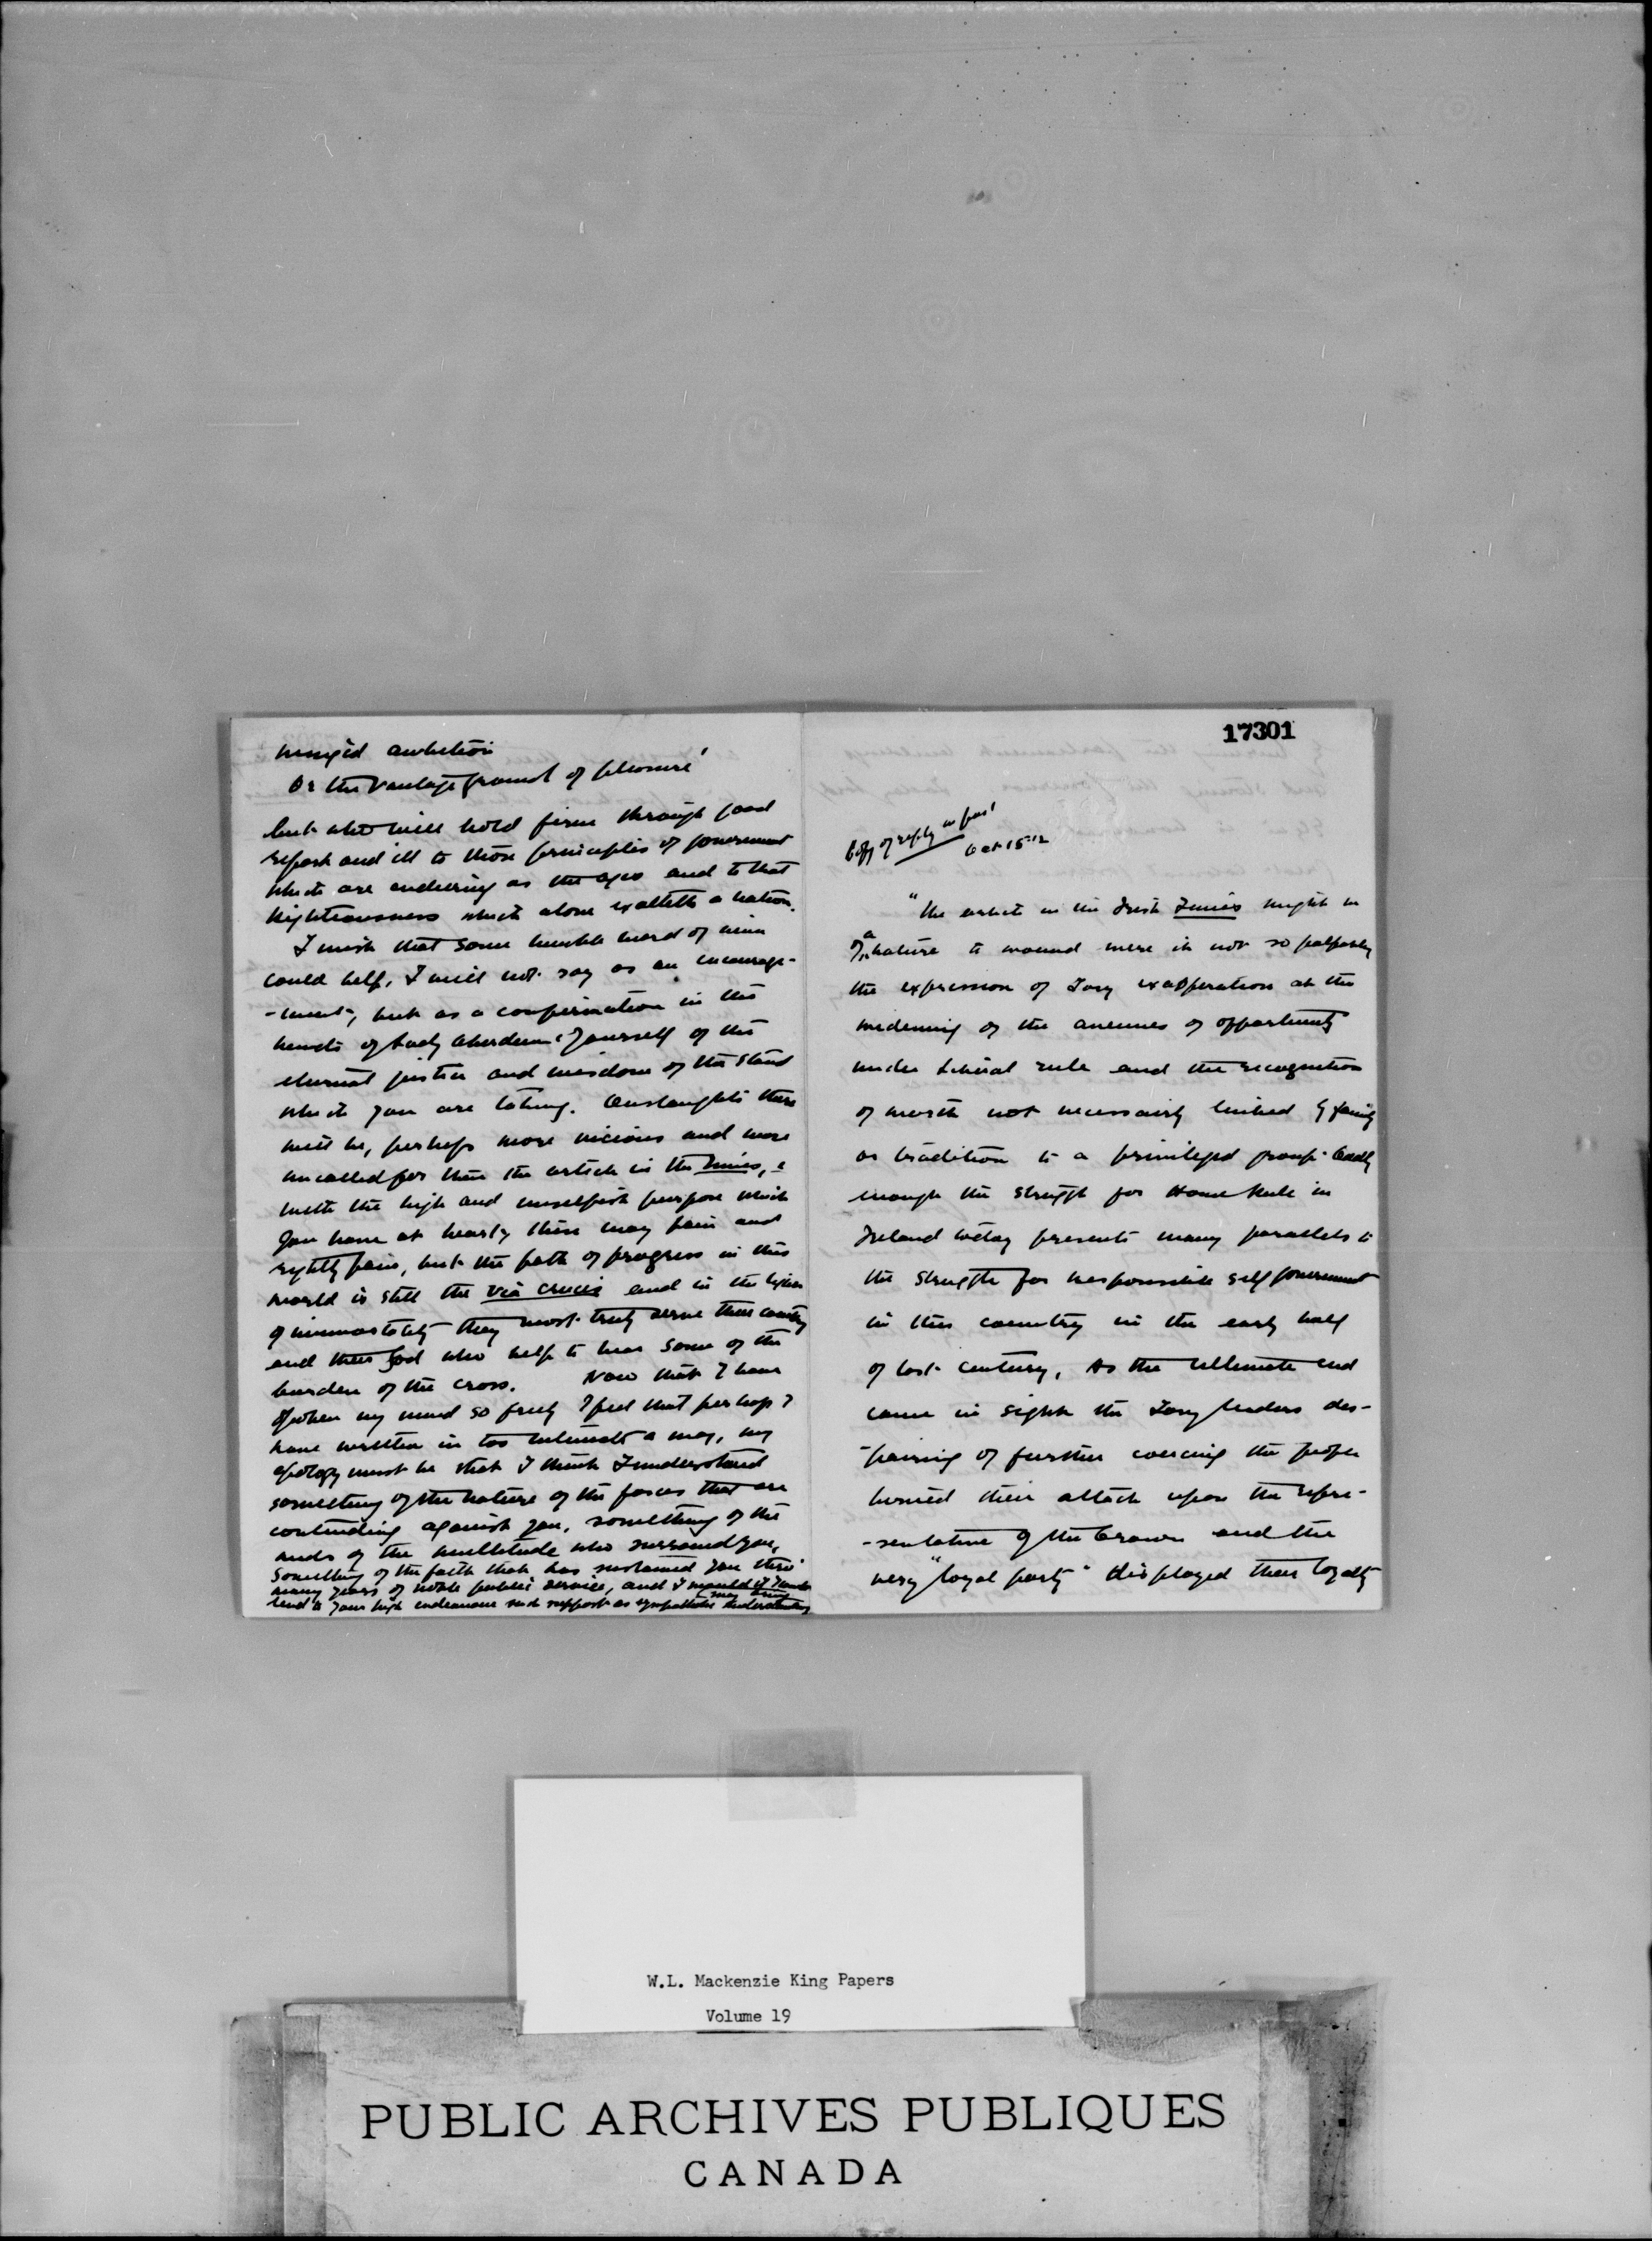 17301
Copy of reply in part
Oct 15 '12
"The article in the Irish Times might be
of a nature to wound were it not so palpably
the expression of Tory exasperation at the
widening of the avenues of opportunity
under Liberal rule and the recognition
of worth not necessarily linked by family
or tradition to a privileged group. Oddly
enough the struggle for Home Rule in
Ireland today presents many parallels to
the struggle for responsible self government
in this country in the early half
of last century. As the ultimate end
came in sight the Tory leaders des-
-pairing of further coercing the people
turned their attack upon the repre-
-sentative of the Crown and the
very "loyal party" displayed their loyalty
winged ambition
Or the vantage ground of pleasure'
but who will hold firm through good
report and ill to those principles of government
which are enduring as the ages and to that
Righteousness which alone exalteth a nation.
I wish that some humble word of mine
could help, I will not say as an encourage-
-ment, but as a confirmation in the
hearts of Lady Aberdeen & yourself of the
eternal justice and wisdom of the stand
which you are taking. Onslaughts there
will be, perhaps more vicious and more
uncalled for than the article in the Times, &
with the high and unselfish purpose which
you have at heart, these may pain and
rightly pain, but the path of progress in this
world is still the via crucis and in the light
of immortality they most truly serve their country
and their God who help to bear some of the
burden of the cross. Now that I have
spoken my mind so freely I feel that perhaps I
have written in too intimate a way, my
apology must be that I think I understand
something of the nature of the forces that are
contending against you, something of the
needs of the multitude who surround you,
something of the faith that has sustained you thro'
many years of noble public service, and I would if I could
lend to your high endeavour such support as sympathetic understanding
may bring
W.L. Mackenzie King Papers
Volume 19
PUBLIC ARCHIVES PUBLIQUES
CANADA